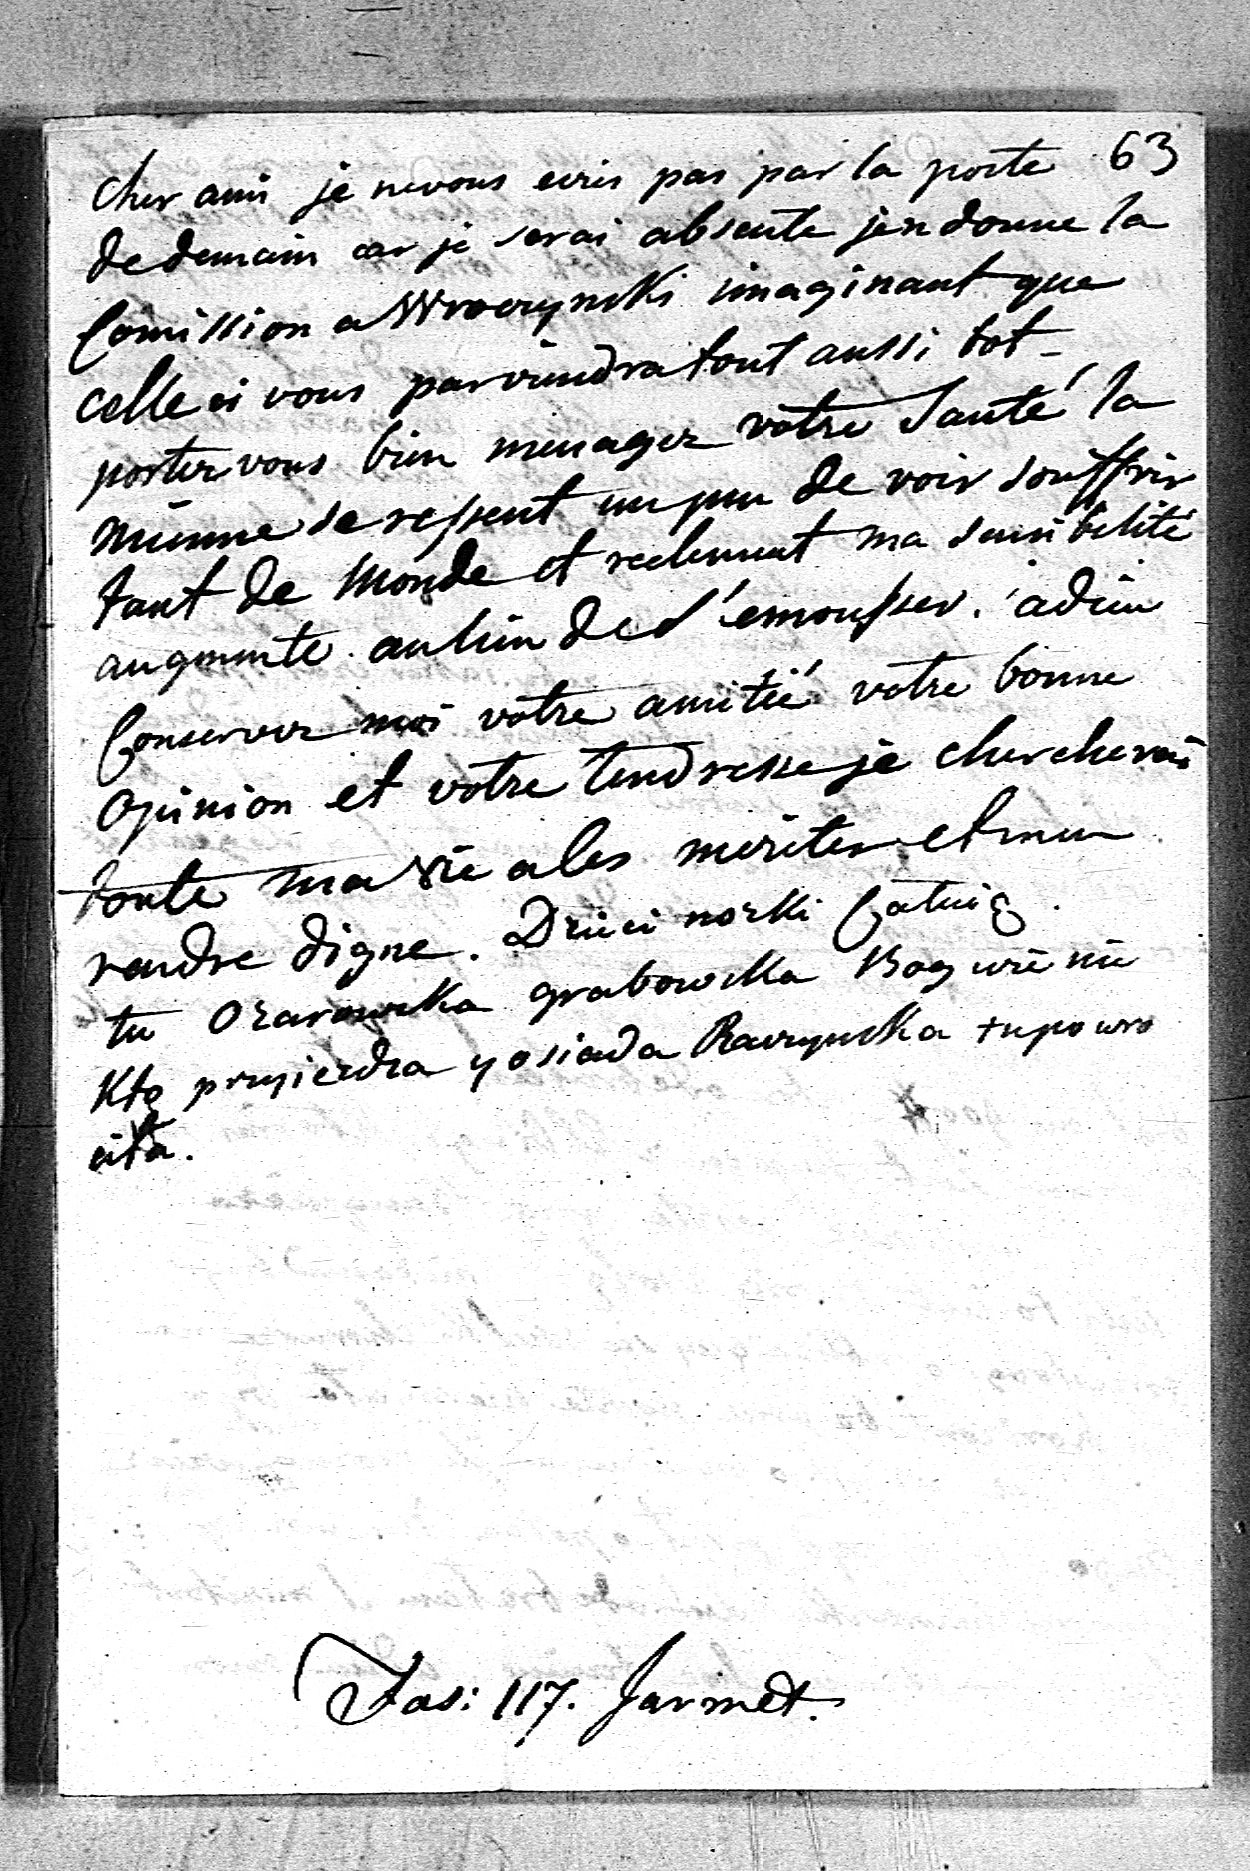 63
cher ami je ne vous ecris pas par la poste
de demain car je serai absente jen donne la
Comission a Wroczynski imaginant que
celle ci vous parviendra tout aussi tot-
portez vous bien menagez votre Santé la
mienne se ressent un peu de voir souffrir
tant de Monde et reelement ma sensibilité
augmente au lieu de s'emousser. adieu
Conservez moi votre amitié votre bonne
Opinion et votre Tendresse je chercherai
toute ma vie a les meriter et men
rendre digne. Dzieci nozki Caluią.
tu Ozarowska grabowska Bog wie nie
Kto przyiezdza y osiada Raczynska tu powro
ciła.
Fas: 117. Jarmet.